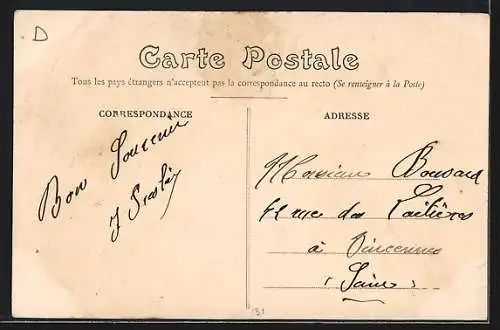 D
Carte Postale
Tous les pays étrangers n'acceptent pas la correspondance au recto (Se renseigner à la Poste)
CORRESPONDANCE
ADRESSE
Bon Souvenir
J
Monsieur Boussard
rue des Laitières
à Vincennes
(Seine)